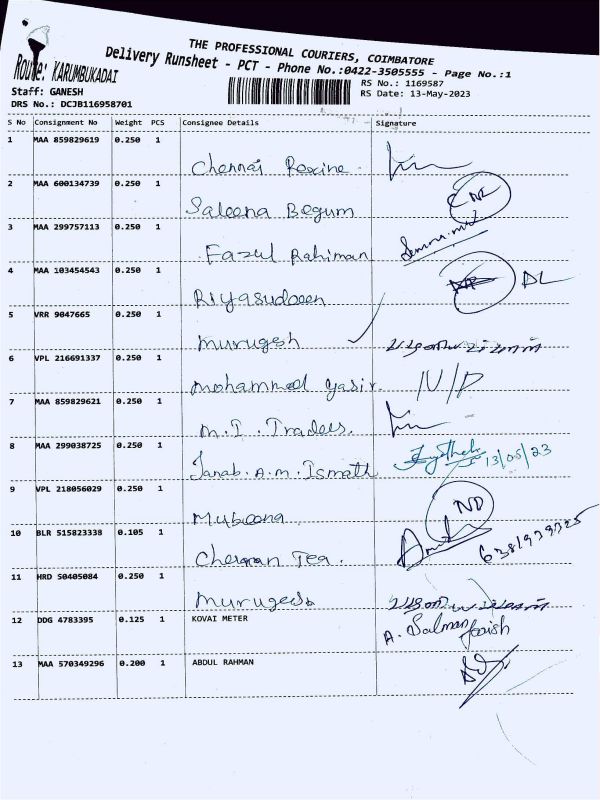 THE PROFESSIONAL COURIERS, COIMBATORE
Delivery Runsheet - PCT - Phone No.:0422-3505555 - Page No.:1
Route: KARUMBUKADAI
Staff: GANESH
DRS No.: DCJB116958701
RS No.: 1169587
RS Date: 13-May-2023
S No Consignment No Weight PCS Consignee Details Signature
1 MAA 859829619 0.250 1 Chennai Rexine.
2 MAA 600134739 0.250 1 Saleena Begum
3 MAA 299757113 0.250 1 Fazul Rahiman
4 MAA 103454543 0.250 1 Riyasudeen DL
5 VRR 9047665 0.250 1 Murugesh
6 VPL 216691337 0.250 1 Mohammed Yasir. N/D
7 MAA 859829621 0.250 1 M.I. Traders.
8 MAA 299038725 0.250 1 Janab.A.M.Ismath 13/05/23
9 VPL 218056029 0.250 1 Mubeena ND
10 BLR 515823338 0.105 1 Tea.
11 HRD 50405084 0.250 1 Murugesh
12 DDG 4783395 0.125 1 KOVAI METER A. Salman
13 MAA 570349296 0.200 1 ABDUL RAHMAN